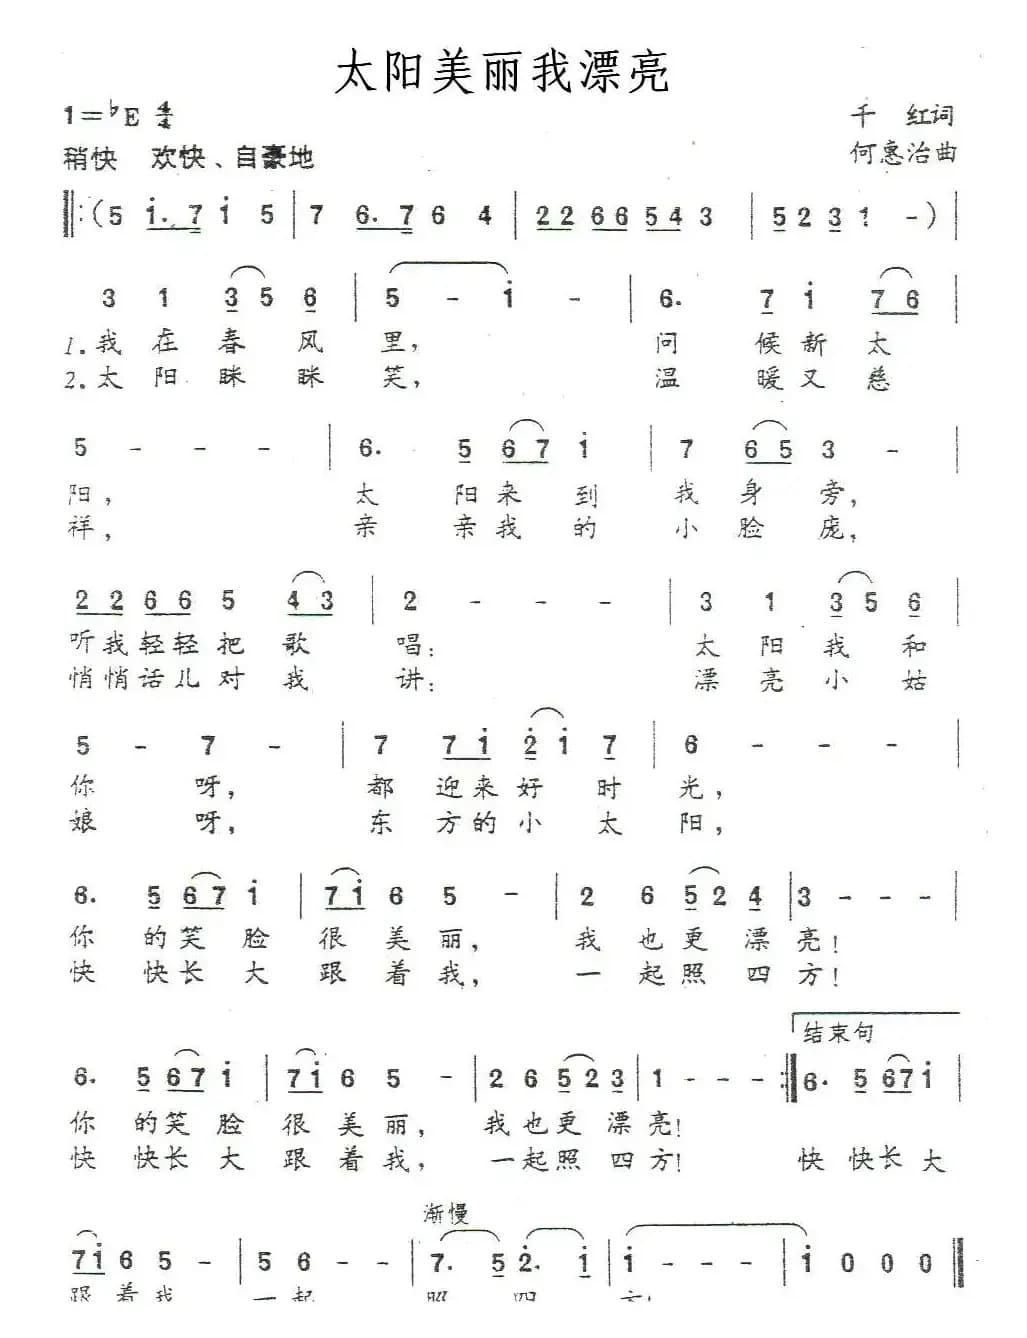 太阳美丽我漂亮
1=♭E 4/4
千 红词
稍快 欢快、自豪地
何惠治曲
‖:(5 i. 7 i 5 | 7 6. 7 6 4 | 2 2 6 6 5 4 3 | 5 2 3 1 -) |
3 1 3 5 6 | 5 - i - | 6. 7 i 7 6
1.我 在 春 风 里, 问 候 新 太
2.太 阳 眯 眯 笑, 温 暖 又 慈
5 - - - | 6. 5 6 7 i | 7 6 5 3 - |
阳, 太 阳 来 到 我 身 旁,
祥, 亲 亲 我 的 小 脸 庞,
2 2 6 6 5 4 3 | 2 - - - | 3 1 3 5 6 |
听 我 轻 轻 把 歌 唱: 太 阳 我 和
悄 悄 话 儿 对 我 讲: 漂 亮 小 姑
5 - 7 - | 7 7 i 2 i 7 | 6 - - - |
你 呀, 都 迎 来 好 时 光,
娘 呀, 东 方 的 小 太 阳,
6. 5 6 7 i | 7 i 6 5 - | 2 6 5 2 4 | 3 - - - |
你 的 笑 脸 很 美 丽, 我 也 更 漂 亮!
快 快 长 大 跟 着 我, 一 起 照 四 方!
结束句
6. 5 6 7 i | 7 i 6 5 - | 2 6 5 2 3 | 1 - - - :‖ 6. 5 6 7 i |
你 的 笑 脸 很 美 丽, 我 也 更 漂 亮!
快 快 长 大 跟 着 我, 一 起 照 四 方! 快 快 长 大
渐慢
7 i 6 5 - | 5 6 - - | 7. 5 2. i | i - - - | i 0 0 0 ‖
跟 着 我, 一 起 照 四 方!